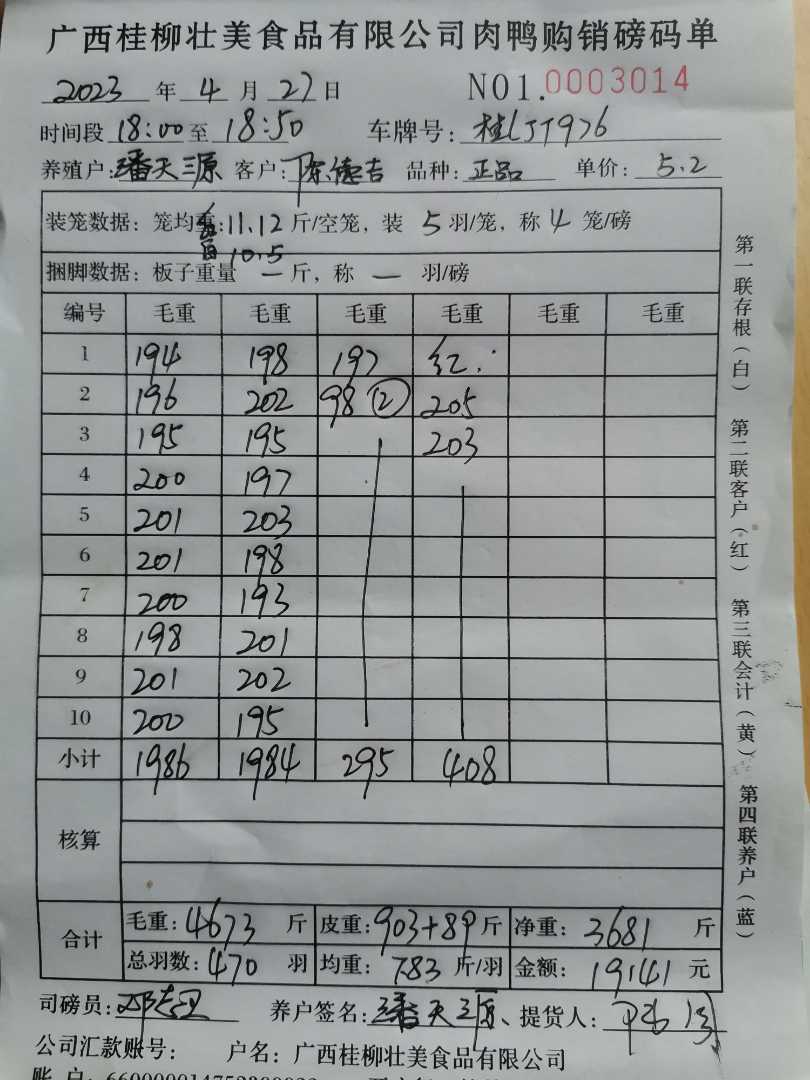 广西桂柳壮美食品有限公司肉鸭购销磅码单
2023 年 4 月 27 日 NO1.0003014
时间段 18:00 至 18:50 车牌号: 桂LJT976
养殖户: 潘天源 客户: 陈德吉 品种: 正品 单价: 5.2
装笼数据: 笼均重: 11.12 斤/空笼, 装 5 羽/笼, 称 4 笼/磅
10.5
捆脚数据: 板子重量 一 斤, 称 一 羽/磅
编号 毛重 毛重 毛重 毛重 毛重 毛重
1 194 198 197 红:
2 196 202 98 ② 205
3 195 195 203
4 200 197
5 201 203
6 201 198
7 200 193
8 198 201
9 201 202
10 200 195
小计 1986 1984 295 408
核算
合计 毛重: 4673 斤 皮重: 903+89 斤 净重: 3681 斤
总羽数: 470 羽 均重: 7.83 斤/羽 金额: 19141 元
司磅员: 养户签名: 潘天源、提货人:
公司汇款账号: 户名: 广西桂柳壮美食品有限公司
第一联存根(白) 第二联客户(红) 第三联会计(黄) 第四联养户(蓝)